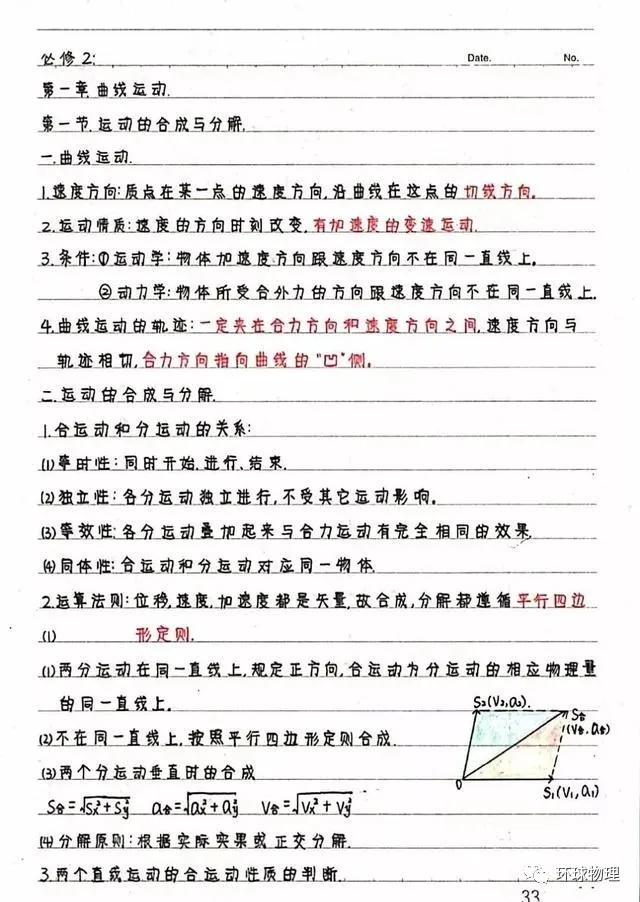 必修2: Date. No.
第一章.曲线运动.
第一节.运动的合成与分解.
一.曲线运动.
1.速度方向:质点在某一点的速度方向,沿曲线在这点的切线方向。
2.运动性质:速度的方向时刻改变,有加速度的变速运动.
3.条件:①运动学:物体加速度方向跟速度方向不在同一直线上。
②动力学:物体所受合外力的方向跟速度方向不在同一直线上.
4.曲线运动的轨迹:一定夹在合力方向和速度方向之间,速度方向与
轨迹相切,合力方向指向曲线的"凹"侧。
二.运动的合成与分解.
1.合运动和分运动的关系:
(1)等时性:同时开始.进行、结束.
(2)独立性:各分运动独立进行,不受其它运动影响。
(3)等效性:各分运动叠加起来与合力运动有完全相同的效果.
(4)同体性:合运动和分运动对应同一物体.
2.运算法则:位移,速度,加速度都是矢量,故合成,分解都遵循平行四边
(1) 形定则.
(1)两分运动在同一直线上,规定正方向,合运动为分运动的相应物理量
的同一直线上。
S₂(V₂,a₂).
S合
(V合,a合)
(2)不在同一直线上,按照平行四边形定则合成.
(3)两个分运动垂直时的合成
O
S₁(V₁,a₁)
S合=√Sx²+Sy² a合=√ax²+ay² V合=√Vx²+Vy²
(4)分解原则:根据实际实果或正交分解.
3.两个直线运动的合运动性质的判断.
环球物理
33